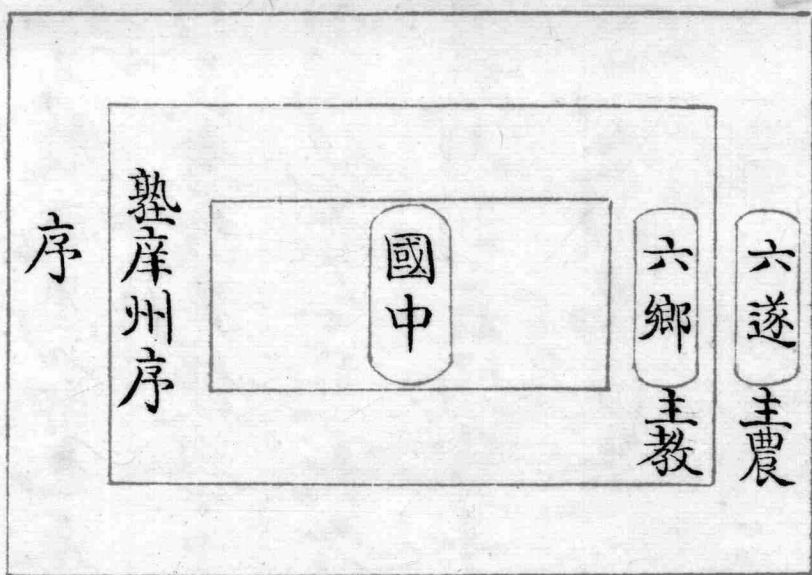 六遂主農
六鄉主教
國中
塾庠州序
序